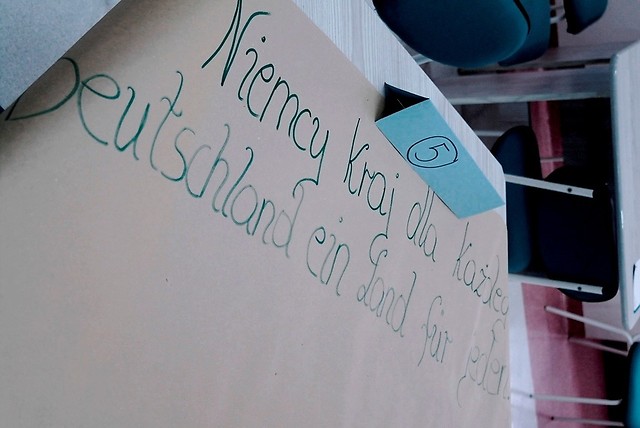 Niemcy kraj dla każdego
Deutschland ein Land für jeden
5